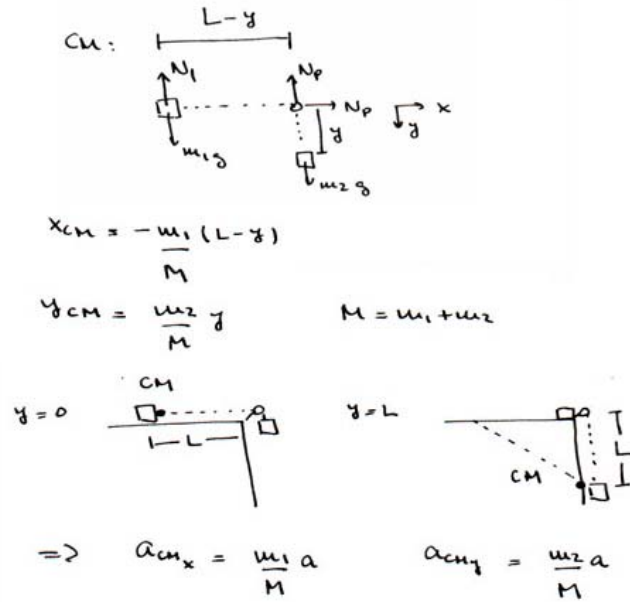 L-y
CM:
N₁ Nₚ
Nₚ x
y y
m₁g
m₂g
x_CM = - m₁/M (L-y)
y_CM = m₂/M y M = m₁+m₂
CM
y=0 y=L
L L
CM
=> a_CMx = m₁/M a a_CMy = m₂/M a